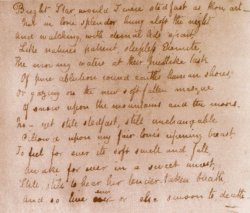 Bright Star would I were stedfast as thou art—
Not in lone splendor hung aloft the night
And watching, with eternal lids apart
Like nature's patient, sleepless Eremite,
The morning waters at their priestlike task
Of pure ablution round earth's human shores,
Or gazing on the new soft-fallen masque
Of snow upon the mountains and the moors.
No— yet still stedfast, still unchangeable
Pillow'd upon my fair love's ripening breast,
To feel for ever its soft swell and fall
Awake for ever in a sweet unrest,
Still, still to hear her tender-taken breath
And so live ever or else swoon to death